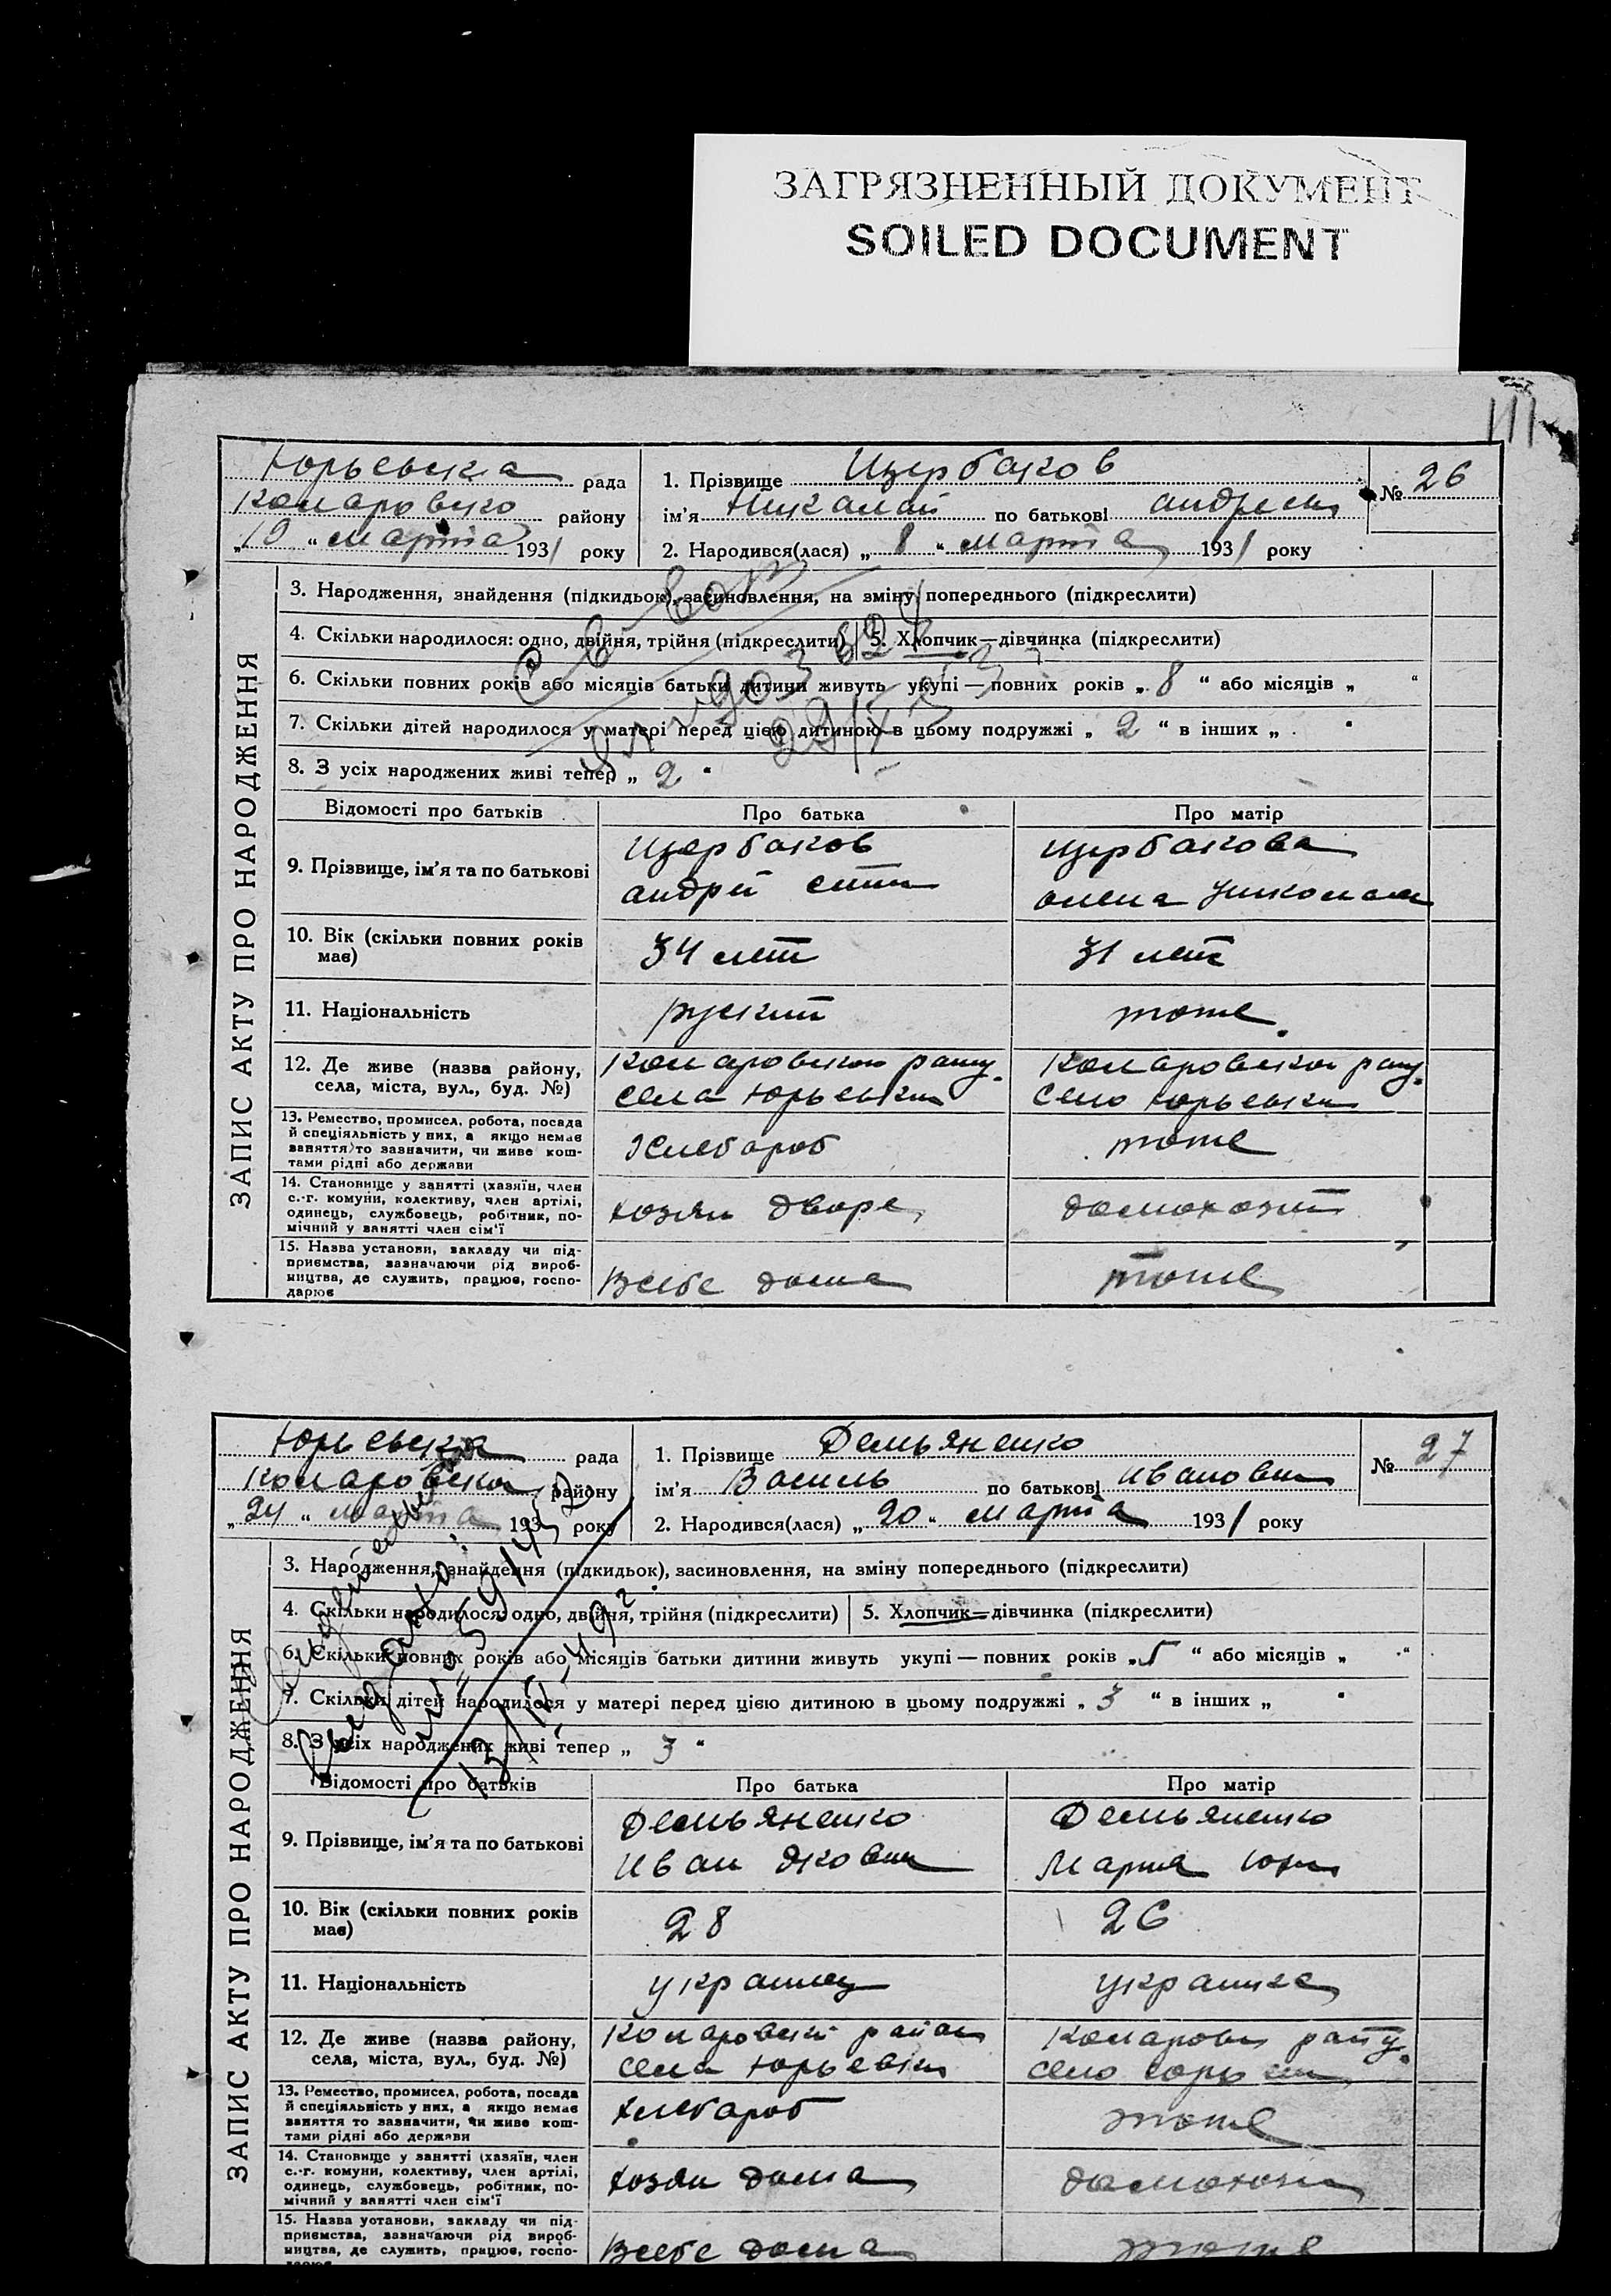 ЗАГРЯЗНЕННЫЙ ДОКУМЕНТ
SOILED DOCUMENT
111
Юрьевска рада
Комаровско району
„10“ марта 1931 року
1. Прізвище Щербаков
ім'я Николай по батькові Андреев
2. Народився(лася) „8“ марта 1931 року
№ 26
ЗАПИС АКТУ ПРО НАРОДЖЕННЯ
3. Народження, знайдення (підкидьок), засиновлення, на зміну попереднього (підкреслити)
4. Скільки народилося: одно, двійня, трійня (підкреслити) 5. Хлопчик—дівчинка (підкреслити)
6. Скільки повних років або місяців батьки дитини живуть укупі — повних років „8“ або місяців „ “
7. Скільки дітей народилося у матері перед цією дитиною в цьому подружжі „2“ в інших „
8. З усіх народжених живі тепер „2“
Відомості про батьків Про батька Про матір
9. Прізвище, ім'я та по батькові
Щербаков
Андрей
Щербакова
Олена
10. Вік (скільки повних років має)
34 лет
31 лет
11. Національність
руский
тоже
12. Де живе (назва району, села, міста, вул., буд. №)
Комаровского рану
села Юрьевки
Комаровског рану
село Юрьевки
13. Ремество, промисел, робота, посада
й спеціяльність у них, а якщо немає
заняття то зазначити, чи живе кош-
тами рідні або держави
Хлебароб
тоже
14. Становище у занятті (хазяїн, член
с.-г. комуни, колективу, член артілі,
одинець, службовець, робітник, по-
мічний у занятті член сім'ї
хозяи двора
домохозя
15. Назва установи, закладу чи під-
приємства, зазначаючи рід вироб-
ництва, де служить, працює, госпо-
дарює
Всебе дома
тоже
Юрьевска рада
Комаровска району
„24“ марта 193 року
1. Прізвище Демьяненко
ім'я Василь по батькові Иванович
2. Народився(лася) „20“ марта 1931 року
№ 27
ЗАПИС АКТУ ПРО НАРОДЖЕННЯ
3. Народження, знайдення (підкидьок), засиновлення, на зміну попереднього (підкреслити)
4. Скільки народилося: одно, двійня, трійня (підкреслити) 5. Хлопчик—дівчинка (підкреслити)
6. Скільки повних років або місяців батьки дитини живуть укупі — повних років „5“ або місяців „ “
7. Скільки дітей народилося у матері перед цією дитиною в цьому подружжі „3“ в інших „
8. З усіх народжених живі тепер „3“
Відомості про батьків Про батька Про матір
9. Прізвище, ім'я та по батькові
Демьяненко
Иван
Демьяненко
Мария
10. Вік (скільки повних років має)
28
26
11. Національність
украинец
украинка
12. Де живе (назва району, села, міста, вул., буд. №)
Комаровски район
села Юрьевки
Комаровск рану
село Юрьевки
13. Ремество, промисел, робота, посада
й спеціяльність у них, а якщо немає
заняття то зазначити, чи живе кош-
тами рідні або держави
хлебароб
тоже
14. Становище у занятті (хазяїн, член
с.-г. комуни, колективу, член артілі,
одинець, службовець, робітник, по-
мічний у занятті член сім'ї
хозяи дома
домохозя
15. Назва установи, закладу чи під-
приємства, зазначаючи рід вироб-
ництва, де служить, працює, госпо-
Всебе дома
тоже